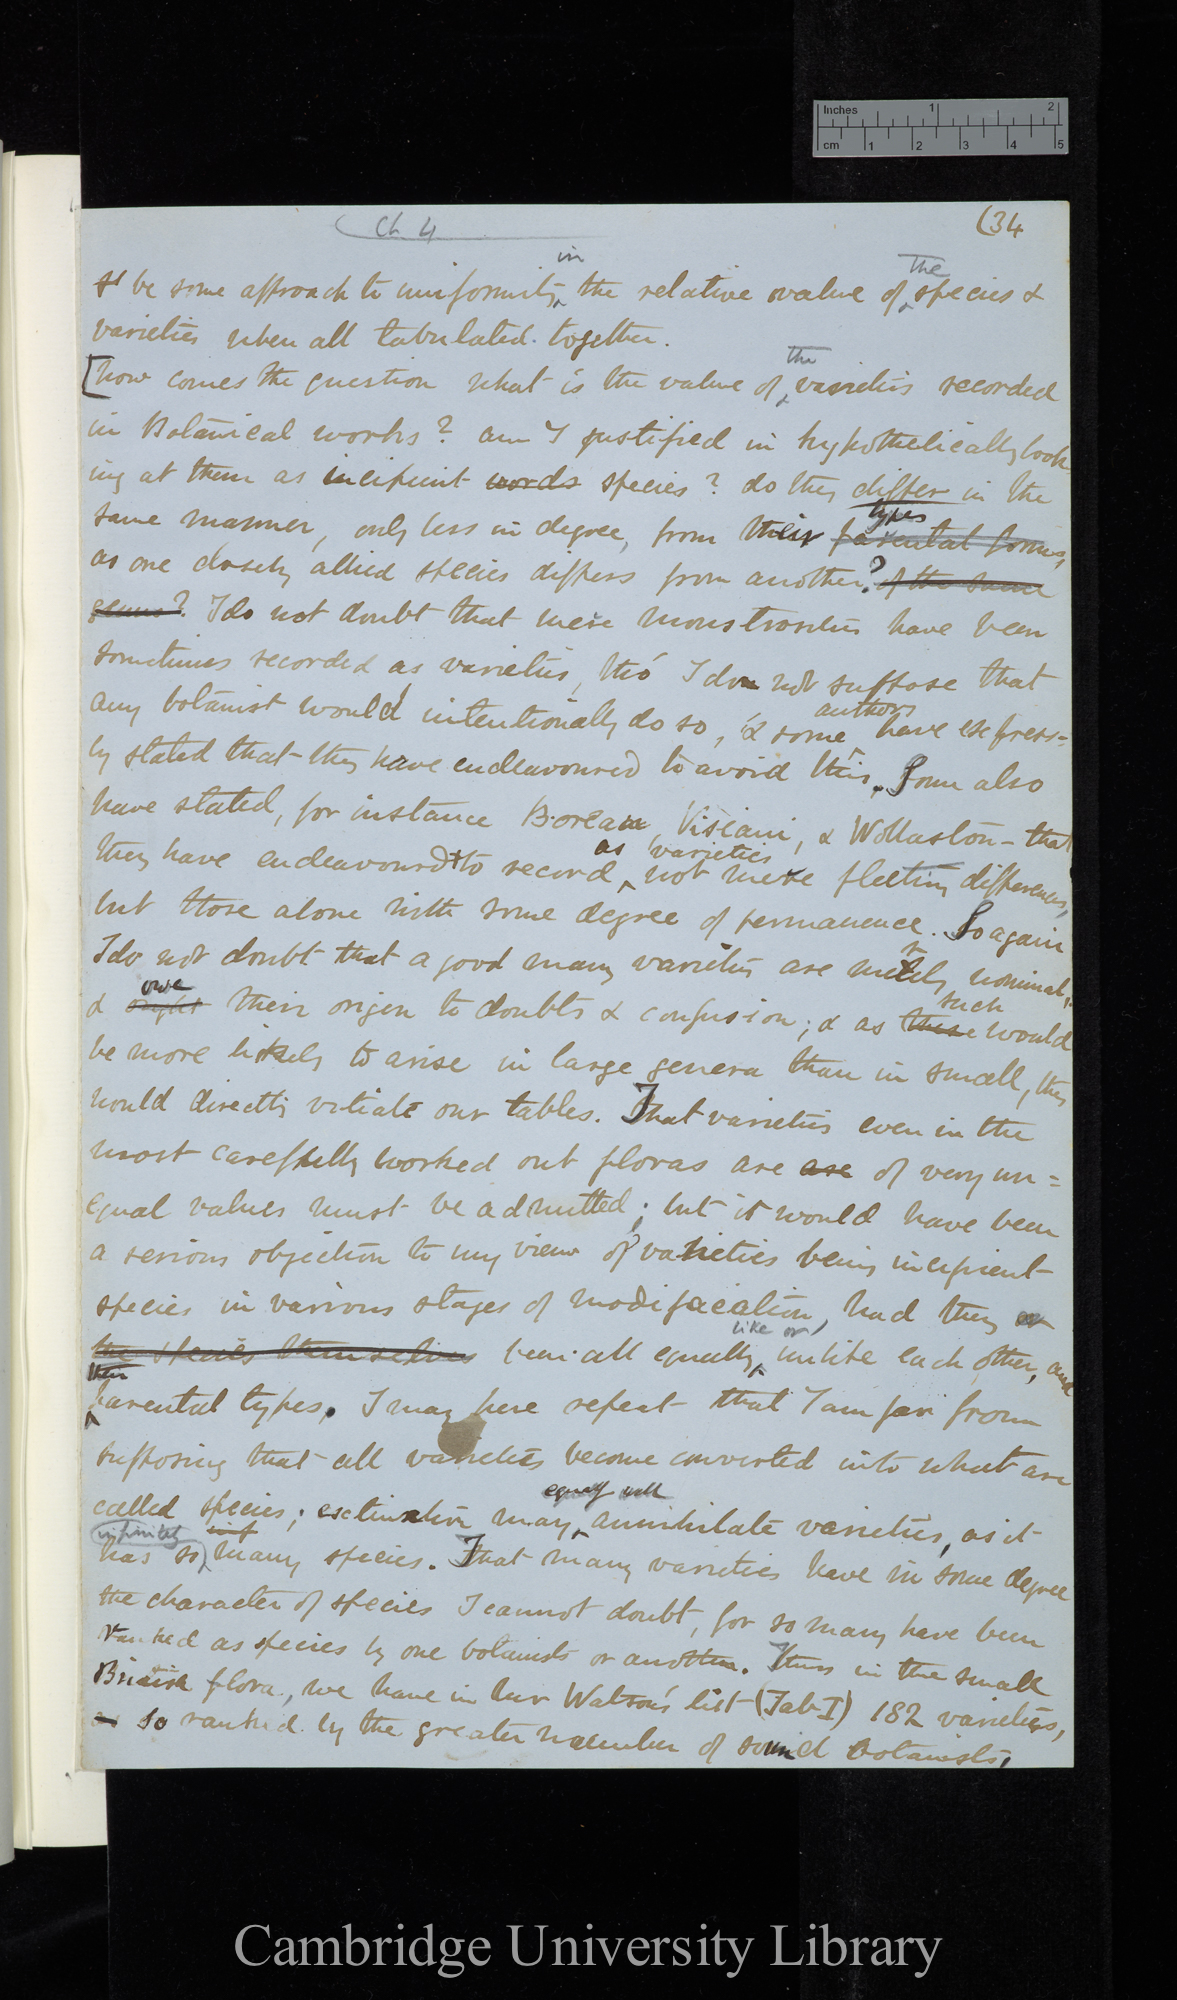 Inches 1 2
cm 1 2 3 4 5
Ch 4
(34
in The
sd be some approach to uniformity the relative value of species &
varieties when all tabulated together.
the
[Now comes the question what is the value of varieties recorded
in Botanical works? am I justified in hypothetically look-
ing at them as incipient words species? do they differ in the
types
same manner, only less in degree, from their parental forms,
as one closely allied species differs from another? of the same
genus? I do not doubt that mere monstrosities have been
sometimes recorded as varieties, tho' I do not suppose that
authors
any botanist would intentionally do so, & some have express-
ly stated that they have endeavoured to avoid this. Some also
have stated, for instance Boreau, Visiani, & Wollaston – that
as varieties
they have endeavoured to record not mere fleeting differences,
but those alone with some degree of permanence. So again
I do not doubt that a good many varieties are merely nominal,
owe such
& ought their origin to doubts & confusion; & as these would
be more likely to arise in large genera than in small, they
would directly vitiate our tables. That varieties even in the
most carefully worked out floras are are of very un=
equal values must be admitted; but it would have been
a serious objection to my view of varieties being incipient
species in various stages of modification, had they or
like or
the species themselves been all equally unlike each other, and
their
parental types. I may here repeat that I am far from
supposing that all varieties become converted into what are
equally well
called species; extinction may annihilate varieties, as it
infinitely inf
has so many species. That many varieties have in some degree
the character of species I cannot doubt, for so many have been
ranked as species by one botanists or another. Thus in the small
British flora, we have in Mr Watson's list (Tab I) 182 varieties,
so ranked by the greater number of sound botanists,
Cambridge University Library